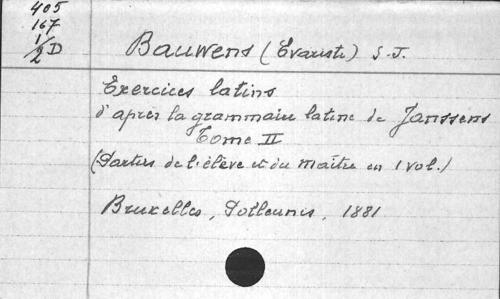 405
167
1/2 D
Bauwens (Evariste) S.J.
Exercices latins
d'après la grammaire latine de Janssens
Tome II
(Parties de l'élève et du maître en 1 vol.)
Bruxelles, Polleunis, 1881